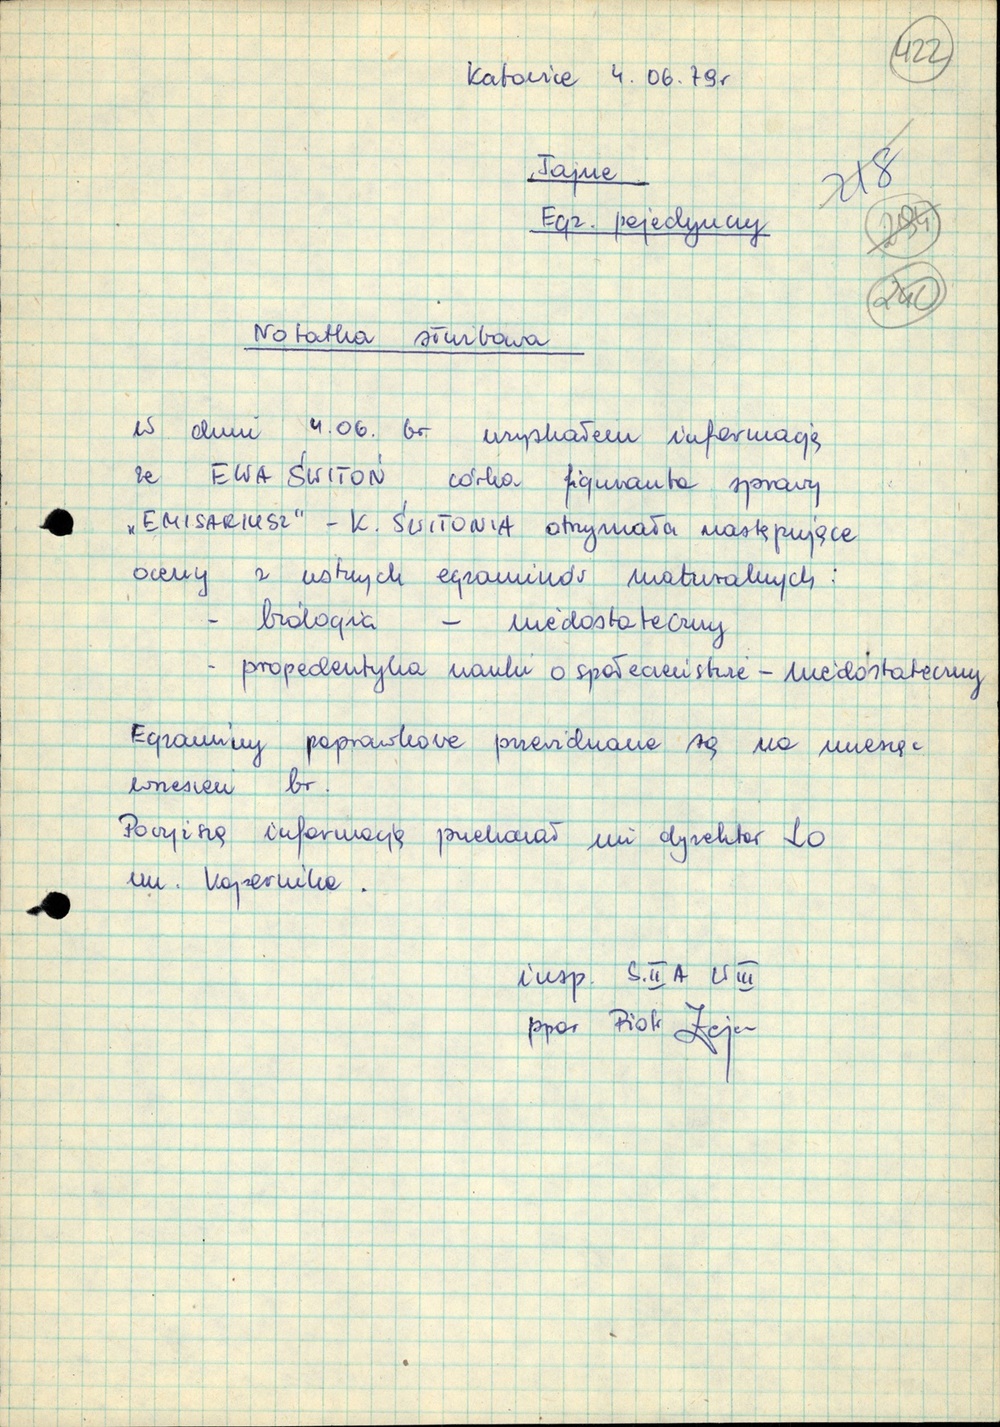 422
Katowice 4.06.79r
Tajne
Egz. pojedynczy
218
294
240
Notatka służbowa
W dniu 4.06. br. uzyskałem informację
że EWA ŚWITOŃ córka figuranta sprawy
„EMISARIUSZ" – K. ŚWITONIA otrzymała następujące
oceny z ustnych egzaminów maturalnych:
- biologia – niedostateczny
- propedeutyka nauki o społeczeństwie – niedostateczny
Egzaminy poprawkowe przewidziane są na miesiąc
wrzesień br.
Powyższą informację przekazał mi dyrektor LO
im. Kopernika.
insp. S.II A W III
ppor Piotr